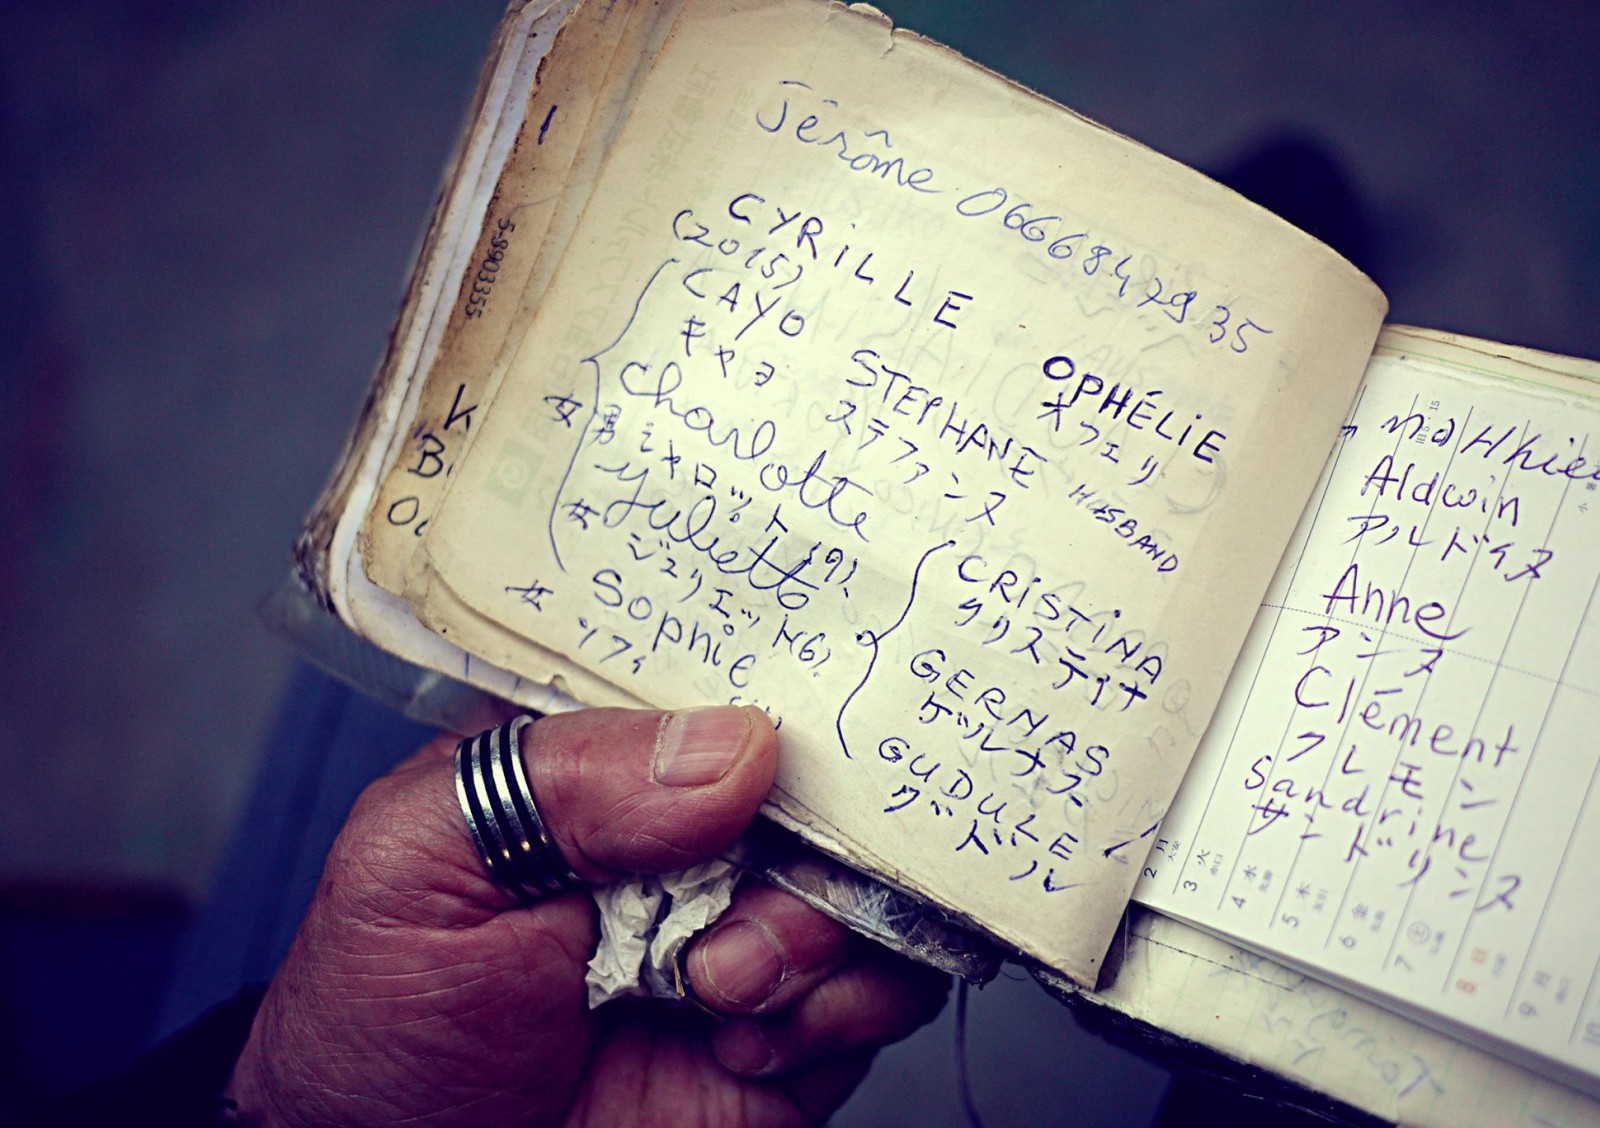 Jérôme 0666847935
CYRiLLE
(2015)
CAYO
キャヨ
OPHÉLiE
オフェリ
STEPHANE
ステファンヌ
HUSBAND
Charlotte
女 男 シャロット(9)
Juliette
女 ジュリエット(6)
Sophie
女 ソフィ
CRiSTiNA
クリスティナ
GERNAS
ゲルナス
GUDULE
グドゥル
5-8903355
K
B
Aldwin
アルドイヌ
Anne
アンヌ
Clément
クレモン
Sandrine
サンドリンヌ
2 月
3 火
4 水
5 木
6 金
7 土
8 日
9 月
10